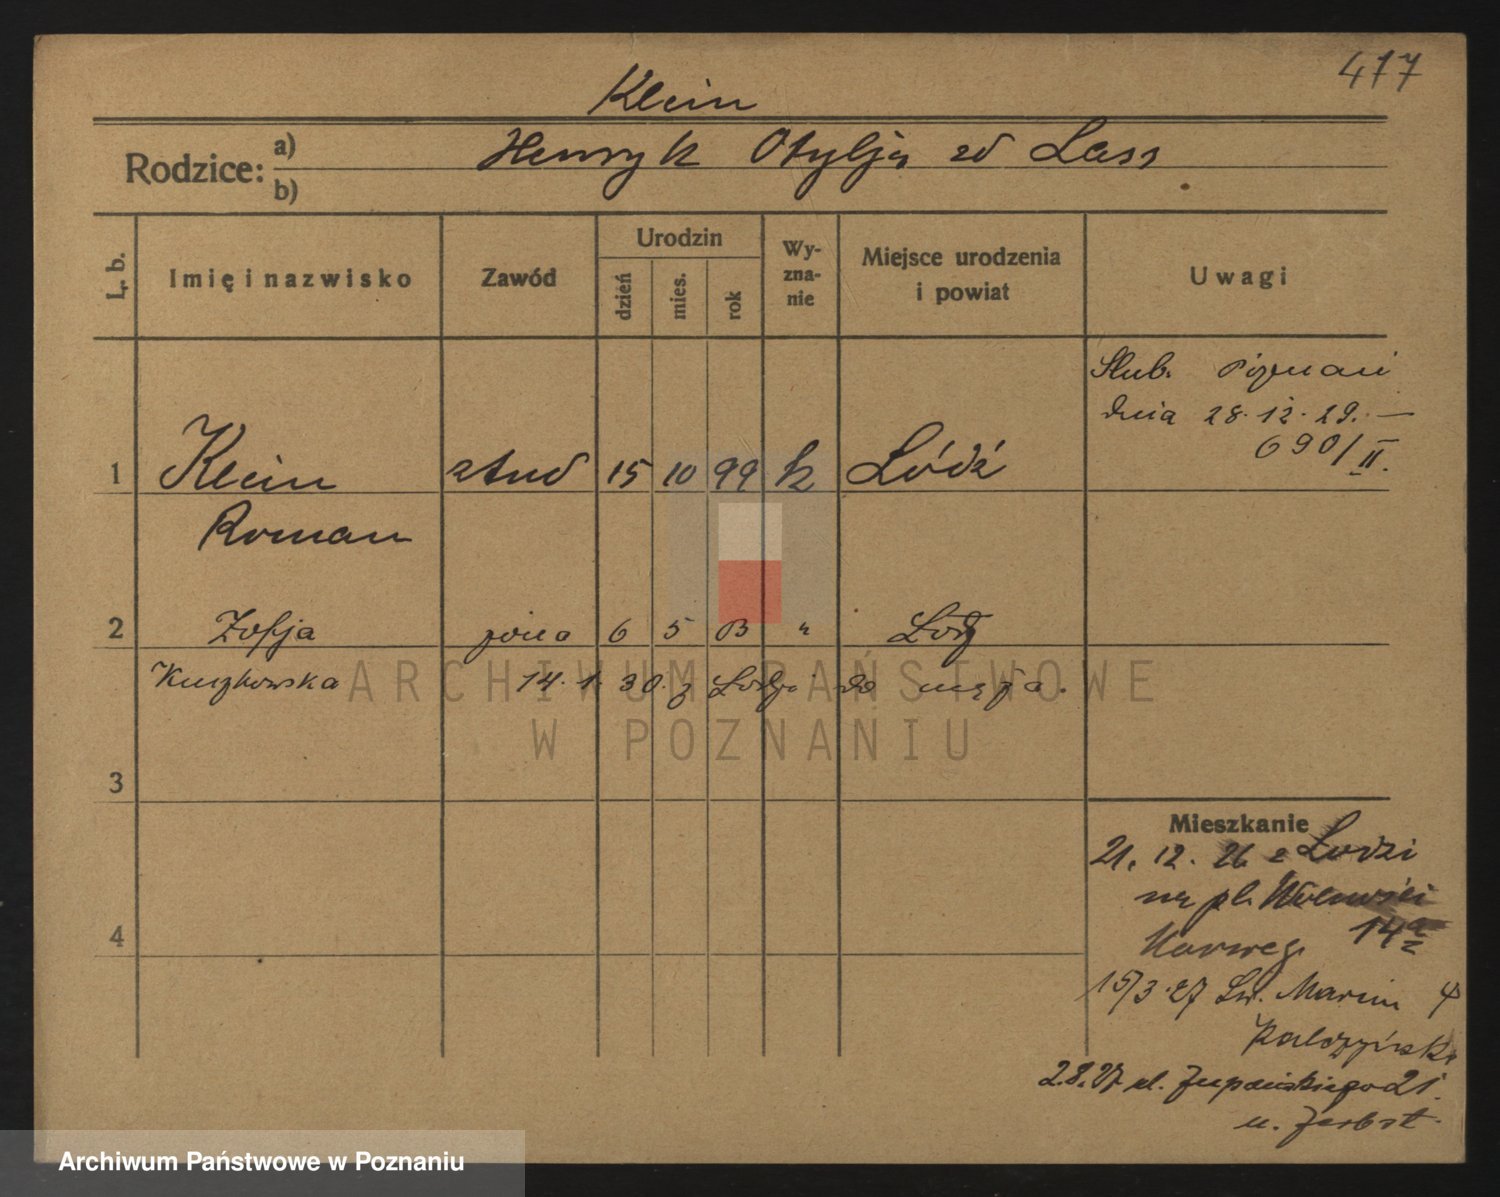 417
Klein
Rodzice: a) Henryk Otylja zd Lass
b)
L. b. Imię i nazwisko Zawód Urodzin dzień mies. rok Wy-zna-nie Miejsce urodzenia i powiat Uwagi
Ślub. Poznań
dnia 28.12.29. —
690/II.
1 Klein stud 15 10 99 k Łódź
Roman
2 Zofja żona 6 5 " Łódź
14.1.30. z Łodzi do męża.
3
Mieszkanie
21.12.26 z Łodzi
na pl.
14a
4
Norweg.
15/3.27 Św. Marcin
2.8.27 ul. Żupańskiego 21.
u. Zerbst.
ARCHIWUM PAŃSTWOWE
W POZNANIU
Archiwum Państwowe w Poznaniu